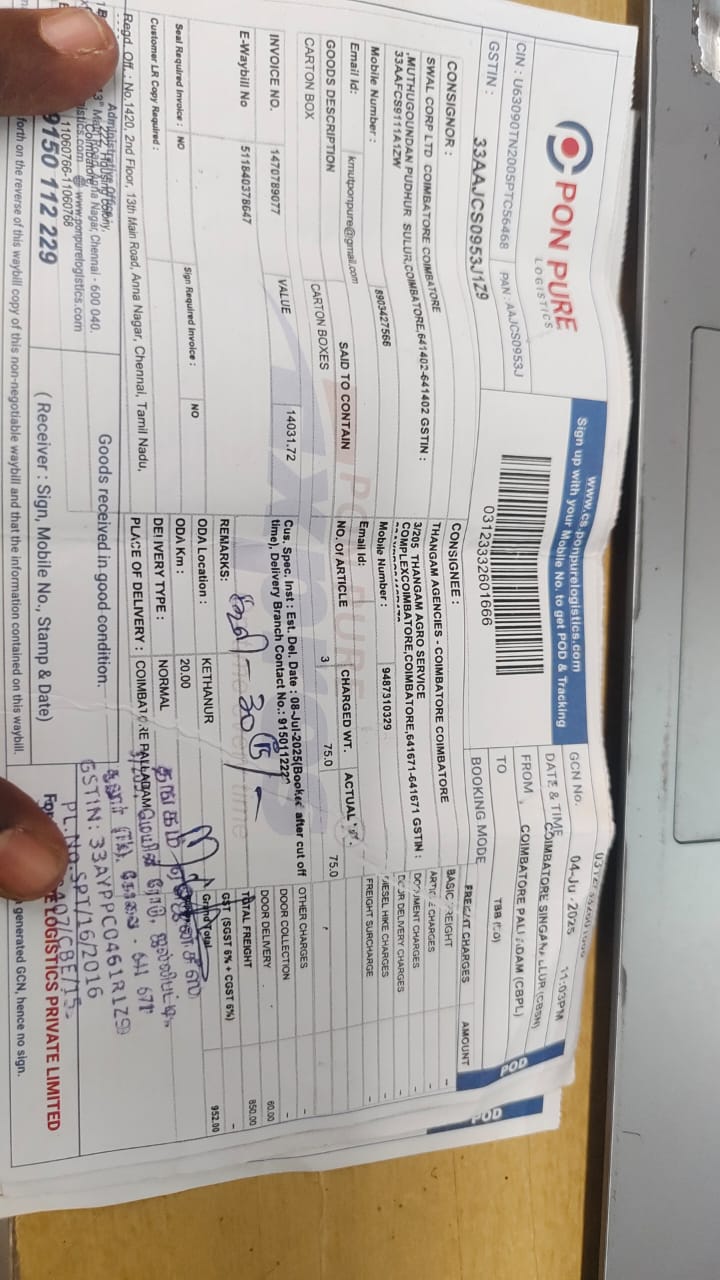 PON PURE
LOGISTICS
CIN : U63090TN2005PTC56468
PAN : AAJCS0953J
GSTIN :
33AAJCS0953J1Z9
www.cs.ponpurelogistics.com
Sign up with your Mobile No. to get POD & Tracking
03123332601666
GCN No.
DATE & TIME
04-Ju -2025 11:03PM
FROM
COIMBATORE SINGAN
TO
COIMBATORE PAL DAM (CBPL)
BOOKING MODE
TBB
POD
POD
CONSIGNOR :
SWAL CORP LTD COIMBATORE COIMBATORE
,MUTHUGOUNDAN PUDHUR SULUR,COIMBATORE,641402-641402 GSTIN :
33AAFCS9111A1ZW
Mobile Number :
8903427566
Email Id:
kmutponpure@gmail.com
CONSIGNEE :
THANGAM AGENCIES - COIMBATORE COIMBATORE
3/205 THANGAM AGRO SERVICE
COMPLEXCOIMBATORE,COIMBATORE,641671-641671 GSTIN :
Mobile Number :
9487310329
Email Id:
GOODS DESCRIPTION
SAID TO CONTAIN
NO. Of ARTICLE
CHARGED WT.
ACTUAL
CARTON BOX
CARTON BOXES
3
75.0
75.0
INVOICE NO.
1470789077
VALUE
14031.72
E-Waybill No
511840378647
Cus. Spec. Inst : Est. Del. Date : 08-Jul-2025(Booked after cut off
time), Delivery Branch Contact No.:
REMARKS:
Seal Required Invoice : NO
Sign Required Invoice :
NO
Customer LR Copy Required :
ODA Location :
KETHANUR
ODA Km :
20.00
DELIVERY TYPE :
NORMAL
PLACE OF DELIVERY :
COIMBATORE PALLADAM
FREIGHT CHARGES
AMOUNT
BASIC FREIGHT
-
CHARGES
-
DOCUMENT CHARGES
-
DOOR DELIVERY CHARGES
-
DIESEL HIKE CHARGES
-
FREIGHT SURCHARGE
-
OTHER CHARGES
-
DOOR COLLECTION
-
DOOR DELIVERY
60.00
TOTAL FREIGHT
850.00
GST (SGST 6% + CGST 6%)
-
Grand Total
952.00
Regd. Off. : No.1420, 2nd Floor, 13th Main Road, Anna Nagar, Chennai, Tamil Nadu,
Administrative Office :
Nagar, Chennai - 600 040.
www.ponpurelogistics.com
11060766-11060768
9150 112 229
Goods received in good condition.
( Receiver : Sign, Mobile No., Stamp & Date)
641 671
GSTIN: 33AYPPC0461R1Z9
PL.No.SPT/16/2016
LOGISTICS PRIVATE LIMITED
forth on the reverse of this waybill copy of this non-negotiable waybill and that the information contained on this waybill.
generated GCN, hence no sign.